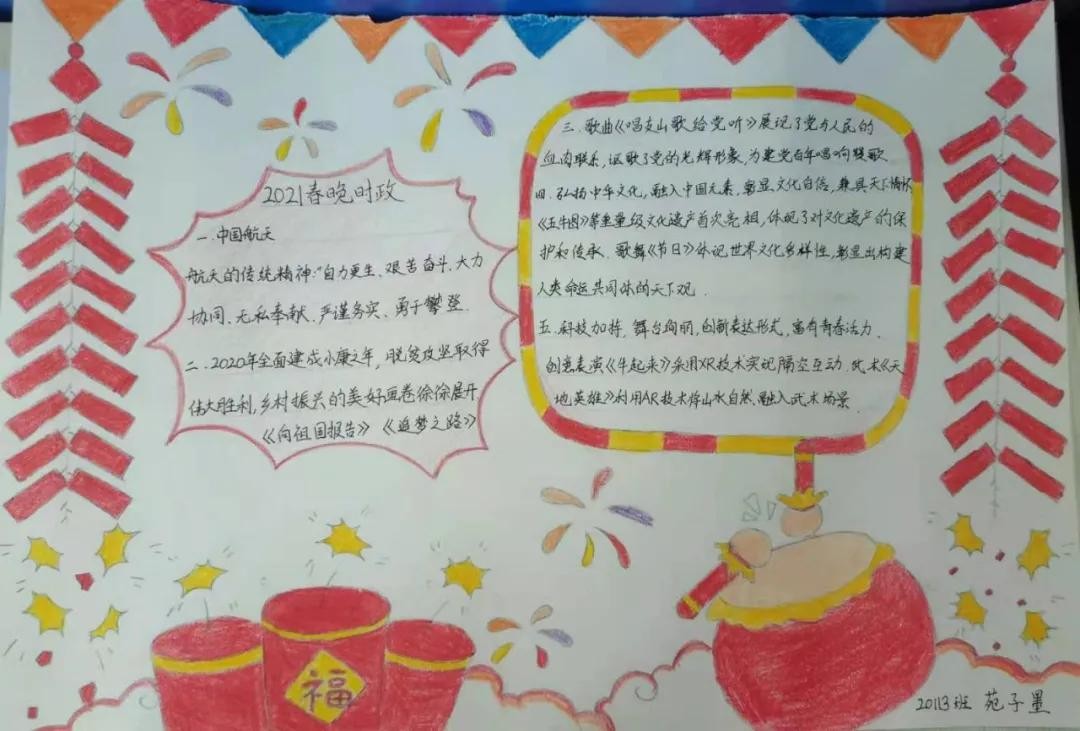 2021春晚时政
一.中国航天
航天的传统精神:“自力更生、艰苦奋斗、大力
协同、无私奉献、严谨务实、勇于攀登.
二.2020年全面建成小康之年,脱贫攻坚取得
伟大胜利,乡村振兴的美好画卷徐徐展开
《向祖国报告》《追梦之路》
三.歌曲《唱支山歌给党听》展现了党与人民的
血肉联系,讴歌了党的光辉形象,为建党百年唱响赞歌
四.弘扬中华文化,融入中国元素,彰显文化自信,兼具天下情怀
《五牛图》等重量级文化遗产首次亮相,体现了对文化遗产的保
护和传承.歌舞《节日》体现世界文化多样性,彰显出构建
人类命运共同体的天下观.
五.科技加持,舞台绚丽,创新表达形式,富有青春活力.
创意表演《牛起来》采用XR技术实现隔空互动.武术《天
地英雄》利用AR技术将山水自然融入武术场景.
福
20113班 苑子墨